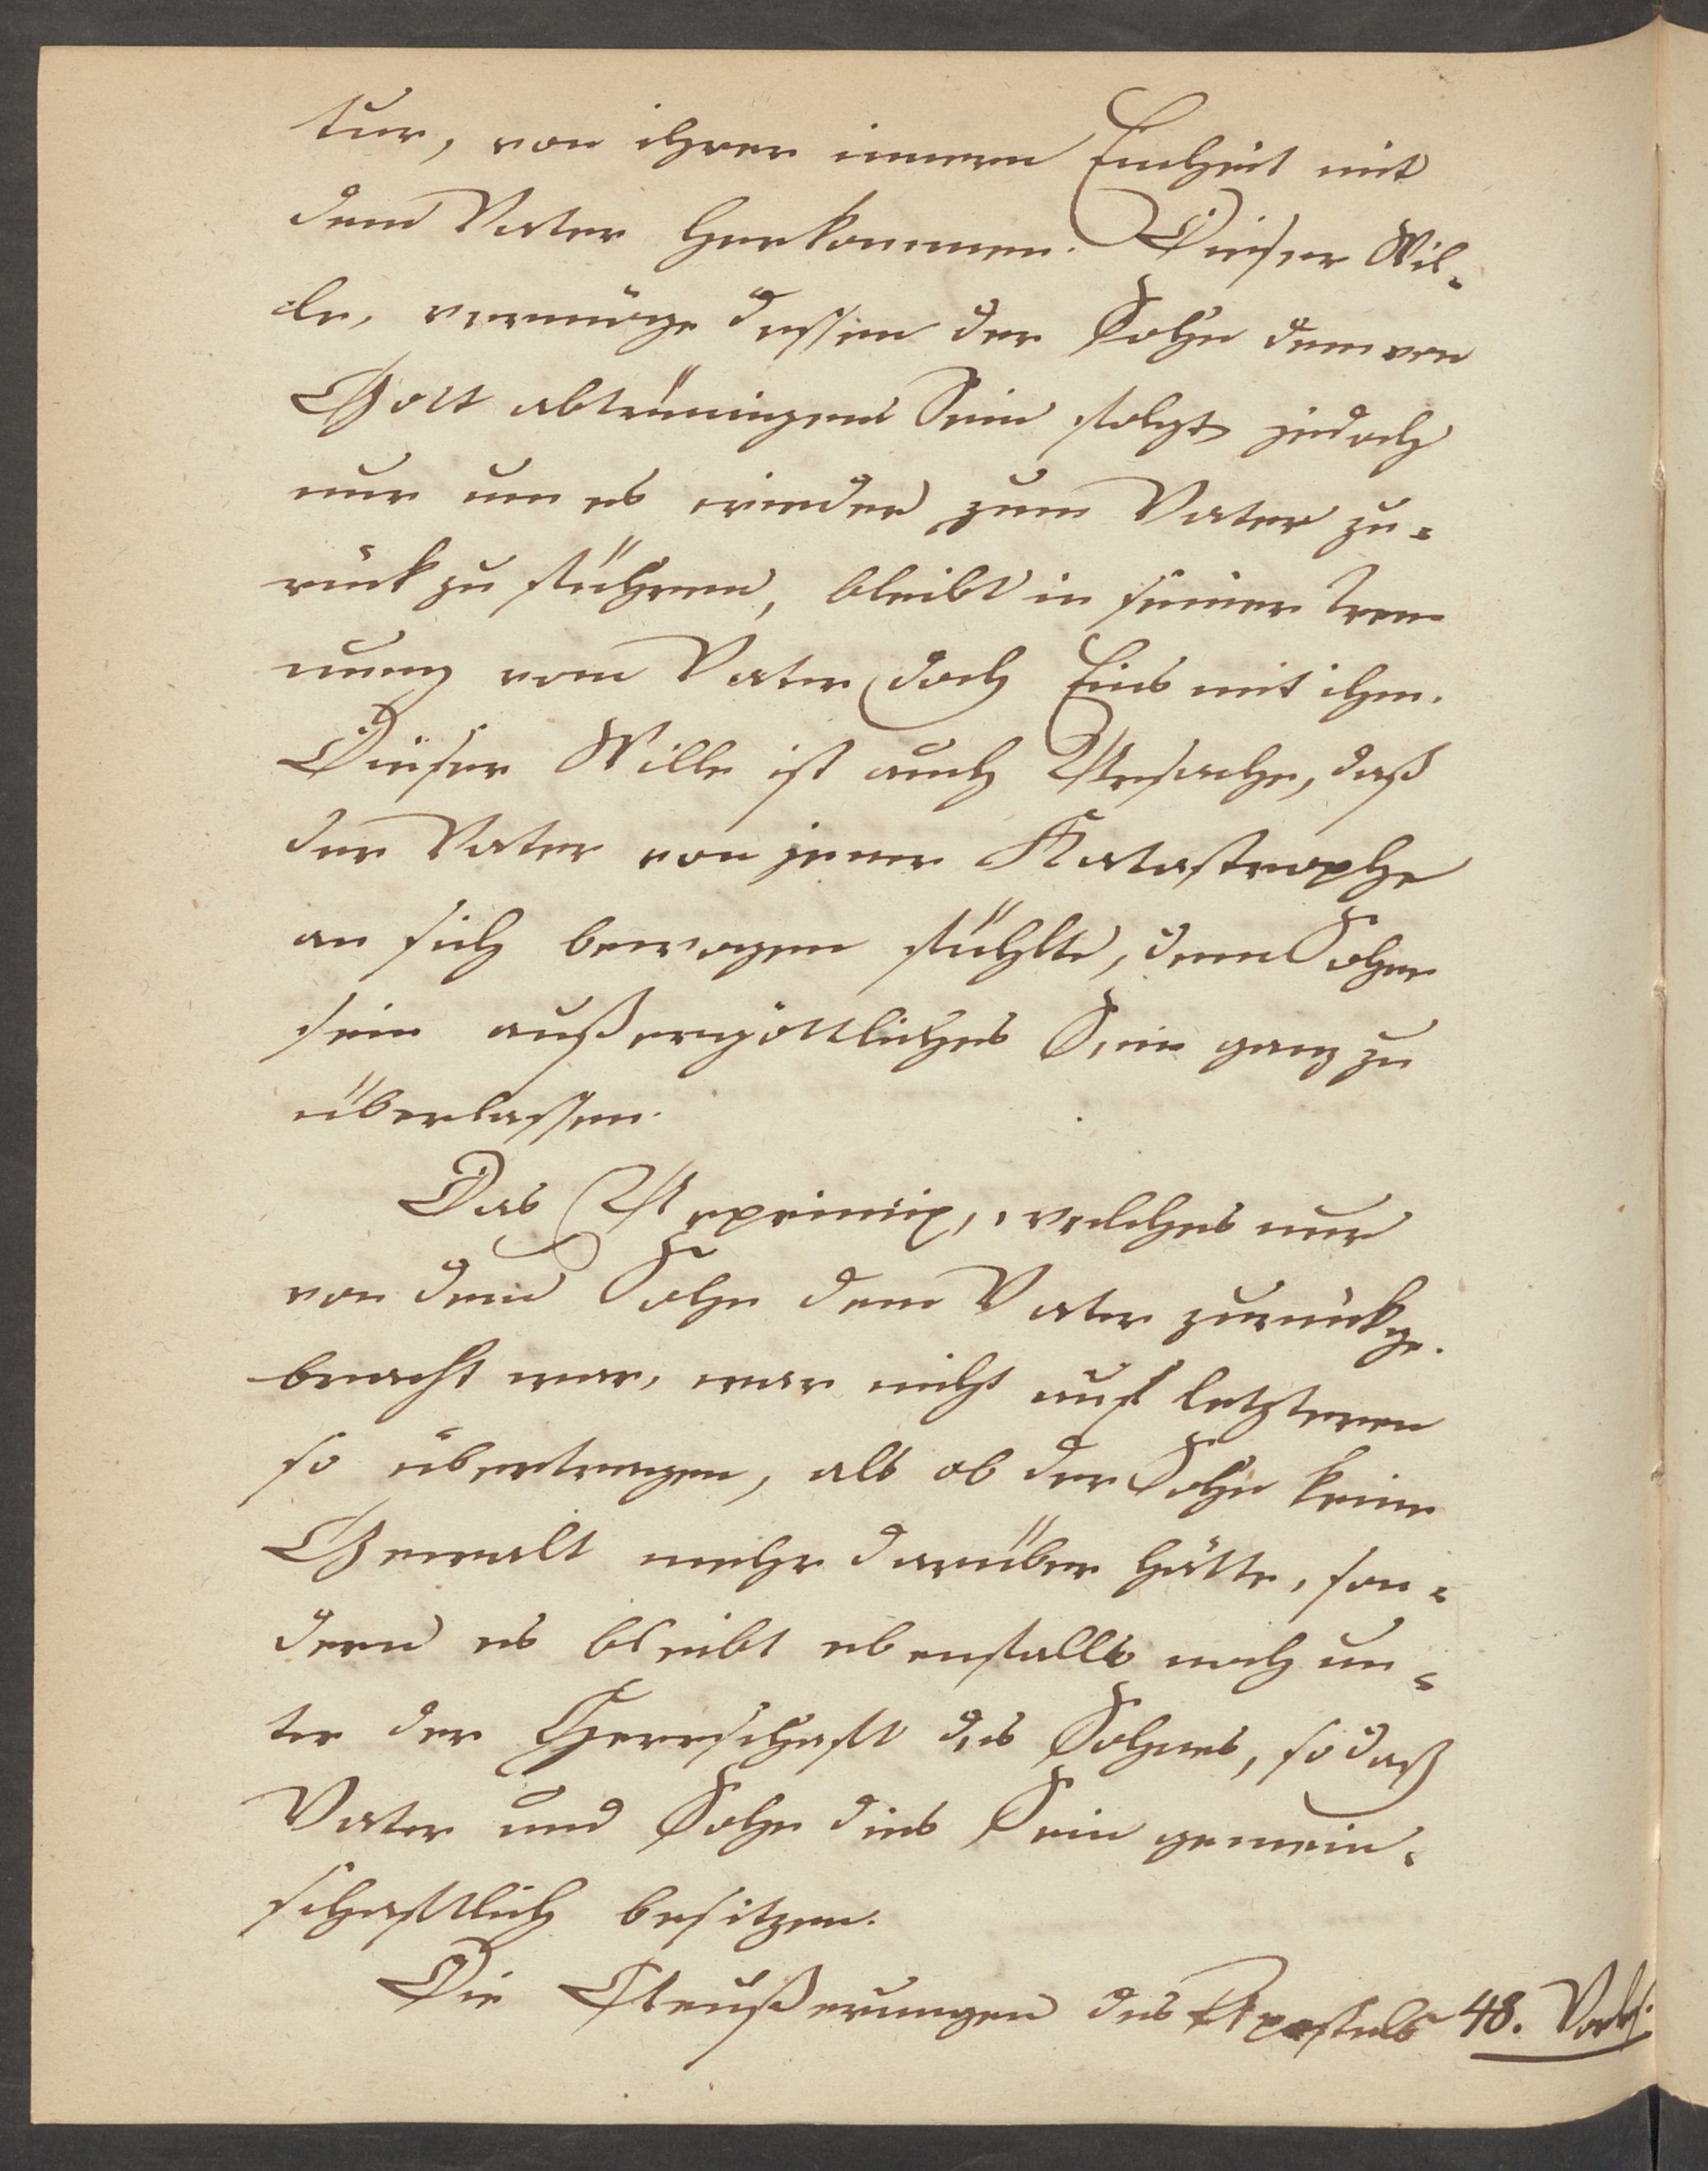 tur, von ihrer innern Einheit mit
dem Vater herkommen. Dieser Wil-
le, vermöge dessen der Sohn dem von
Gott abtrünnigen Sein folgt, jedoch
nur um es wieder zum Vater zu-
rück zu führen, bleibt in seiner Tren
nung vom Vater doch Eins mit ihm.
Dieser Wille ist auch Ursache, daß
der Vater von jener Katastrophe
an sich bewogen fühlte, dem Sohne
sein außergöttliches Sein ganz zu
überlassen.
Das Urprinzip, welches nur
von dem Sohn dem Vater zurückge-
bracht war, war nicht auf letzteren
so übertragen, als ob der Sohn keine
Gewalt mehr darüber hätte, son-
dern es bleibt ebenfalls noch un-
ter der Herrschaft des Sohnes, so daß
Vater und Sohn dies Sein gemein-
schaftlich besitzen.
Die Aeußerungen des Apostels 48. Vorles.